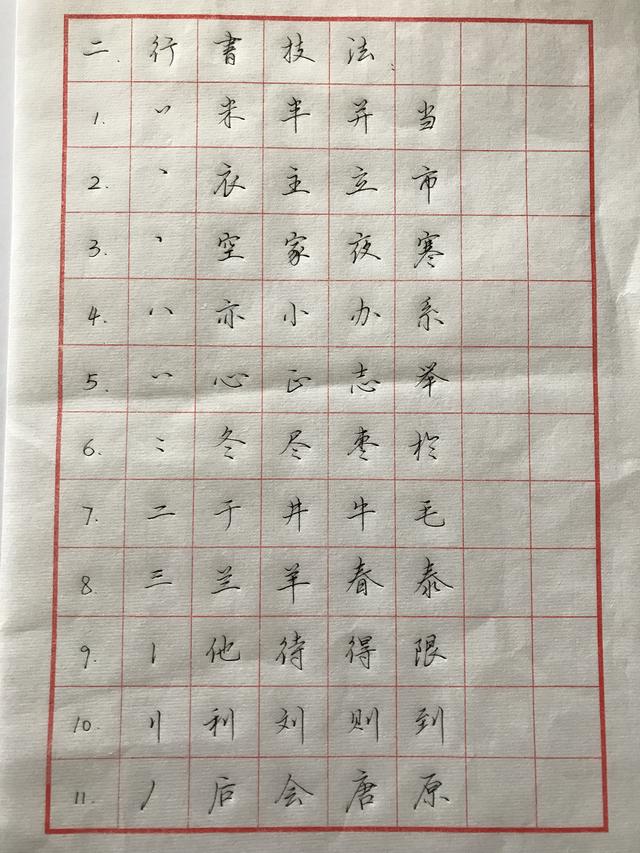 二、行書技法
1. 丷 米 半 并 当
2. 丶 衣 主 立 市
3. 丶 空 家 夜 寒
4. 八 亦 小 办 系
5. 丷 心 正 志 举
6. 冬 尽 枣 於
7. 二 于 井 牛 毛
8. 三 兰 羊 春 泰
9. 丨 他 待 得 限
10. 刂 利 刘 则 到
11. 丿 后 会 唐 原